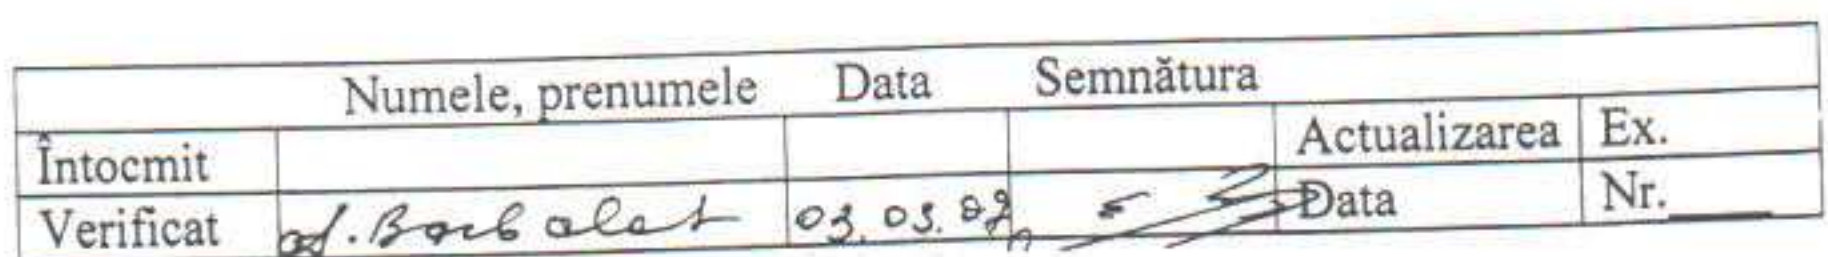 Numele, prenumele Data Semnătura
Întocmit Actualizarea Ex.
Verificat Data Nr.____